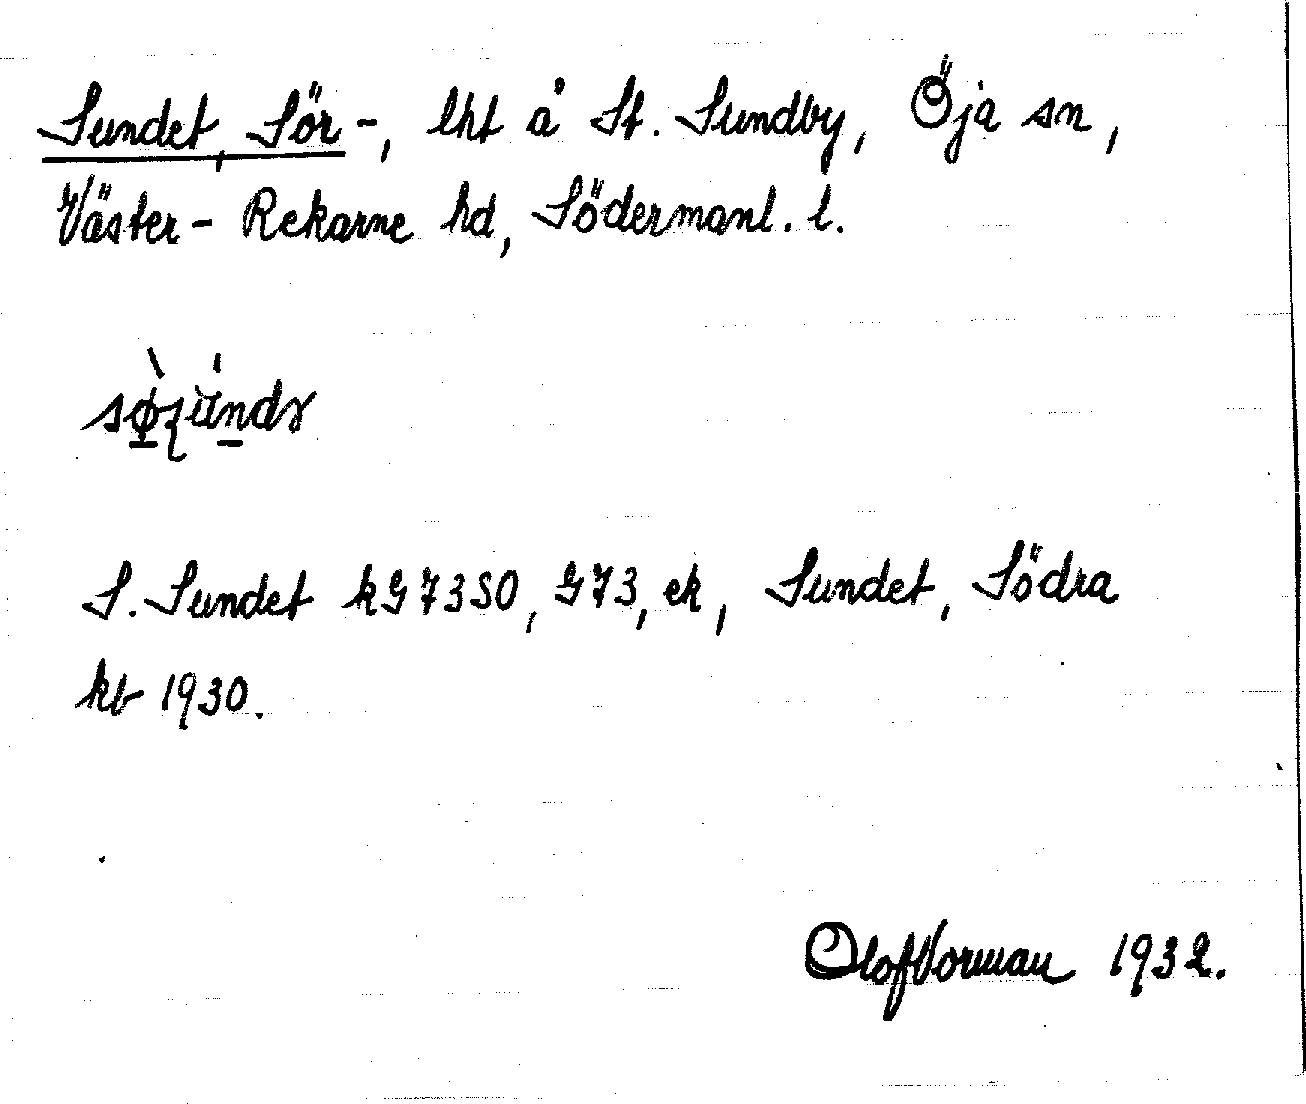 Sundet, Sör-, lht å St. Sundby, Öja sn,
Väster-Rekarne hd, Södermanl. l.
S. Sundet kG 73SO, G73, ek, Sundet, Södra
kb 1930.
Olof Vorman 1932.